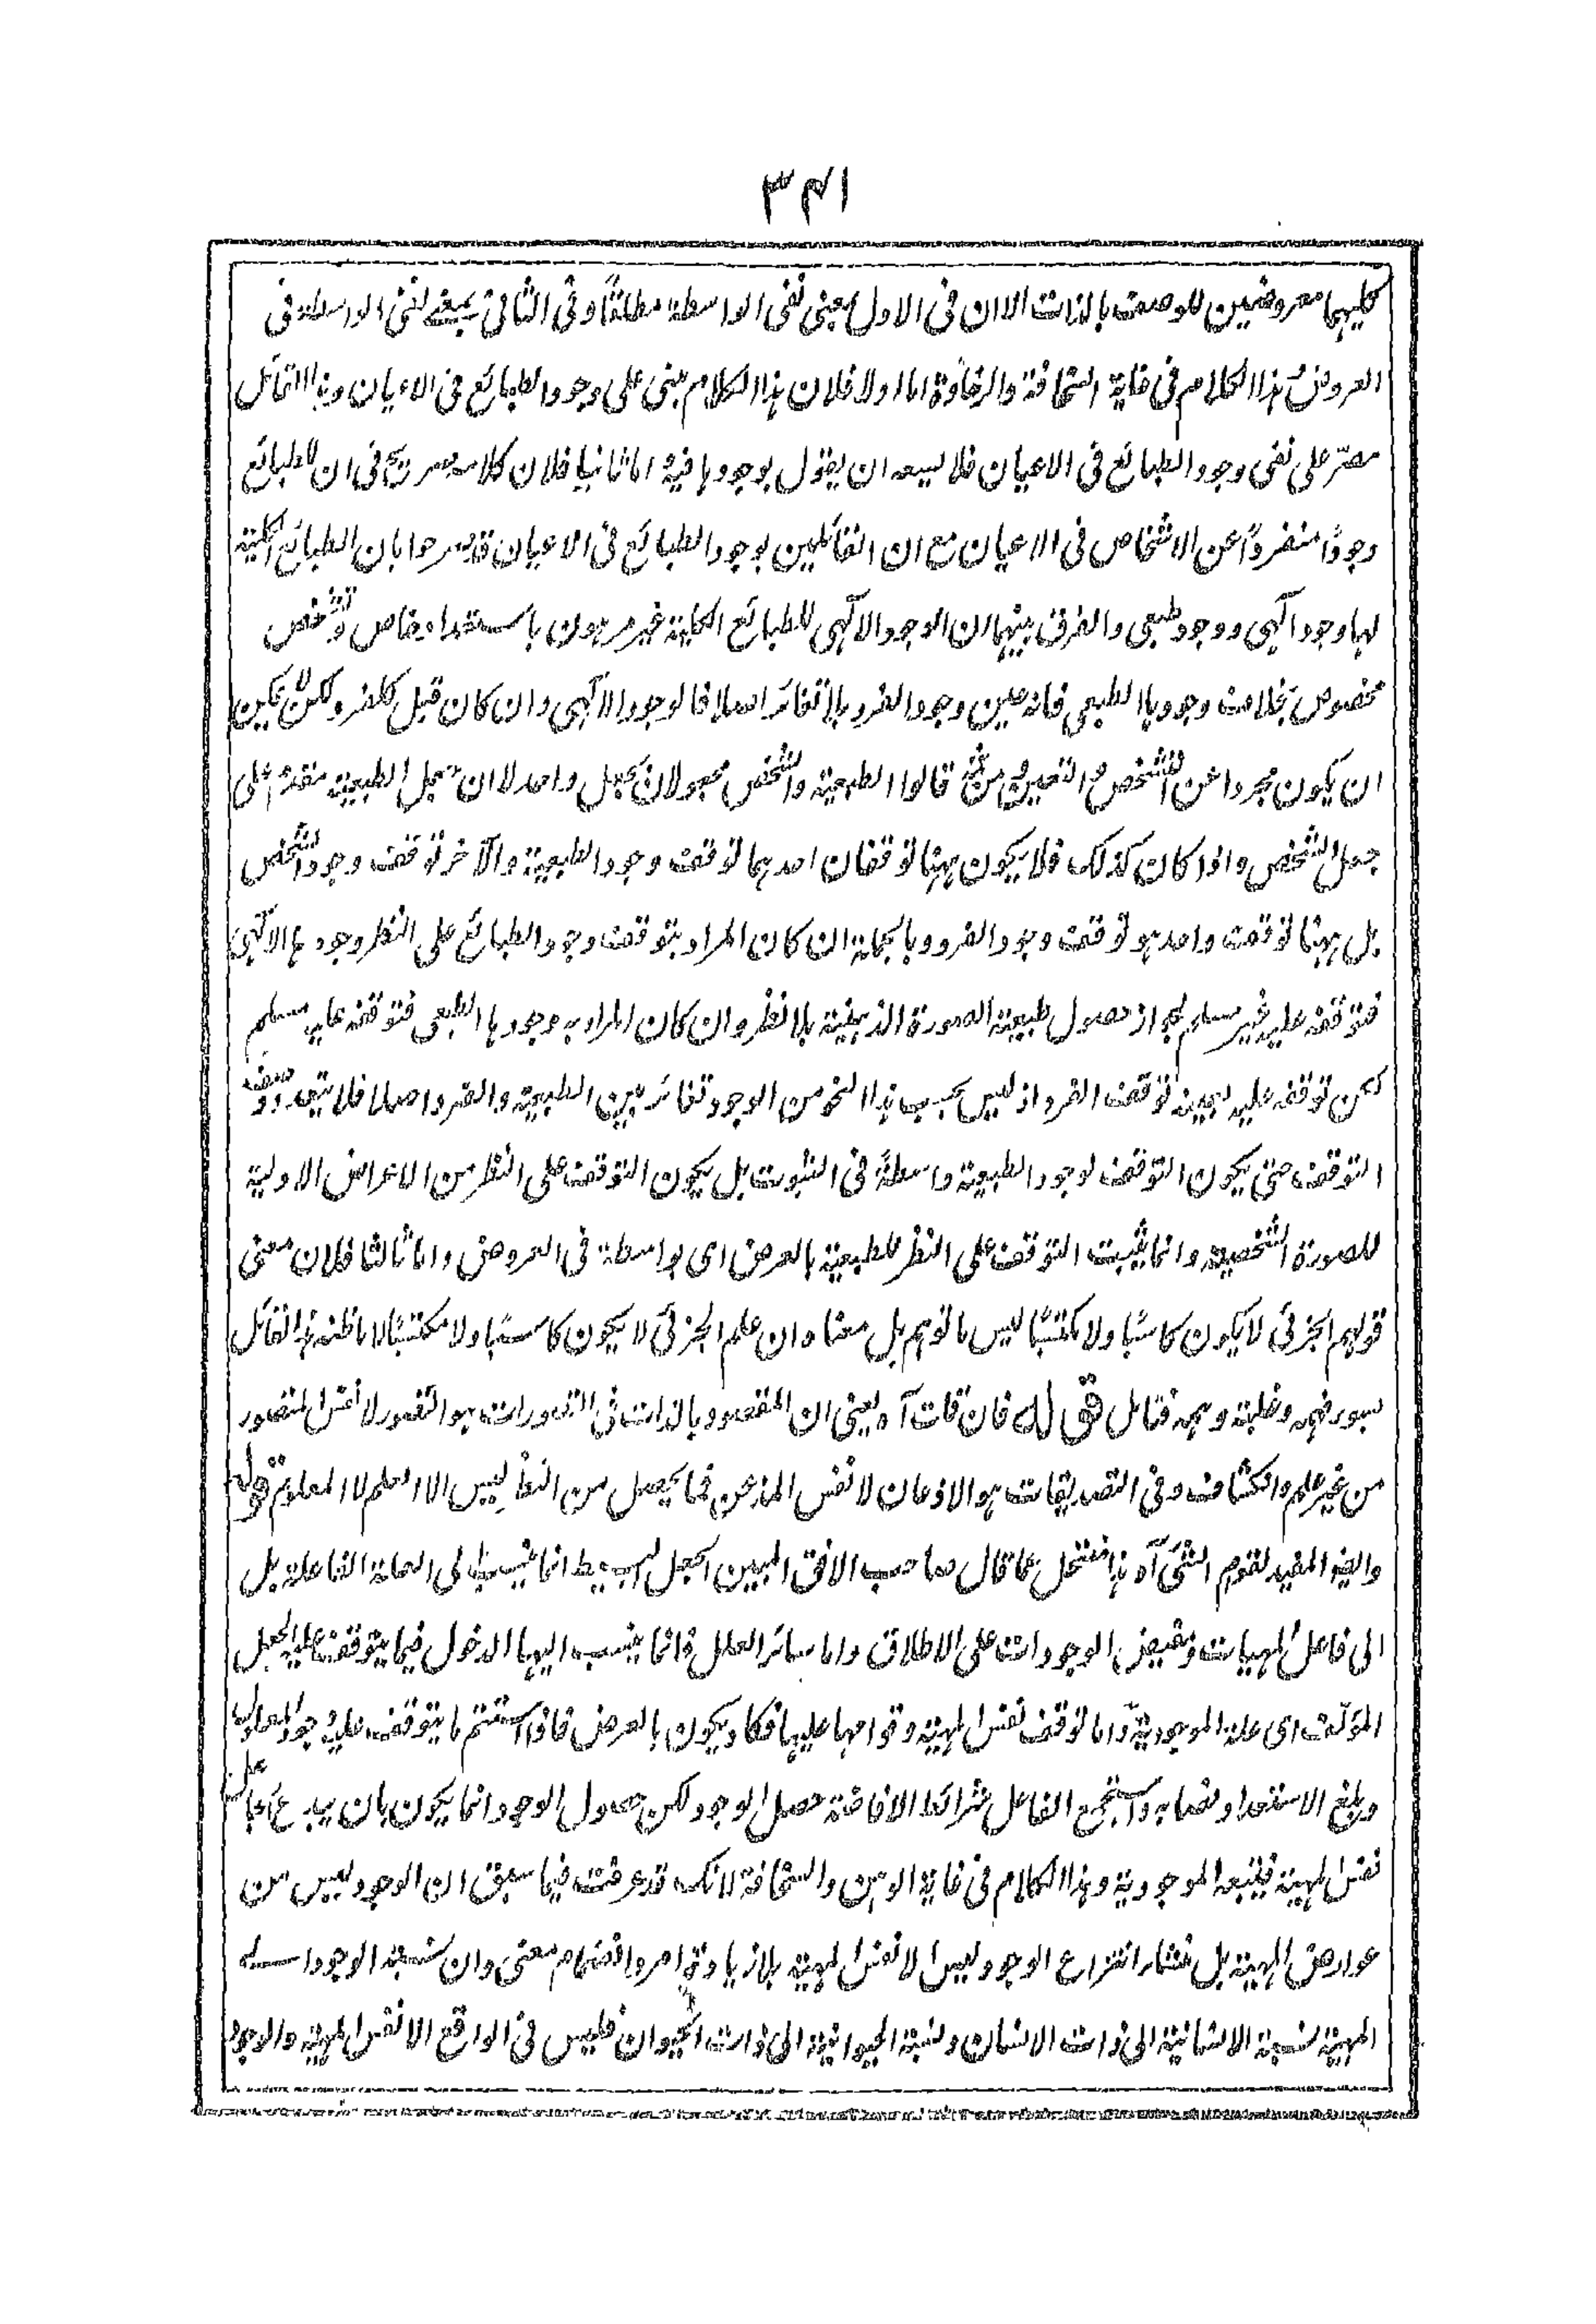 ٣٤١
كليهما معروضين للوصف بالذات الا ان فى الاول بمعنى نفى الواسطة مطلقاً وفى الثانى بمعنى نفى الواسطة فى
العروض هذا الكلام فى غاية السخافة والرخاوة اما اولا فلان هذا الكلام مبنى على وجود الطبائع فى الاعيان وهذا القائل
مصرّ على نفى وجود الطبائع فى الاعيان فلا يسعه ان يقول بوجودها فيه اما ثانيا فلان كلامه صريح فى ان للطبائع
وجوداً منفرداً عن الاشخاص فى الاعيان مع ان القائلين بوجود الطبائع فى الاعيان قد صرحوا بان الطبائع الكلية
لها وجود آلهى ووجود طبعى والفرق بينهما ان الوجود الآلهى للطبائع الكلية غير مرهون باستعداد خاص وتشخص
مخصوص بخلاف وجودها الطبعى فانه عين وجود الفرد بلا تغائر اصلا فالوجود الآلهى وان كان قبل كل فرد ولكن لا يمكن
ان يكون مجردا عن التشخص والتعين ومن ثمّ قالوا الطبعية والشخص مجعولان بجعل واحد لا ان جعل الطبعية مقدم على
جعل الشخص واذا كان كذلك فلا يكون ههنا توقفان احدهما توقف وجود الطبعية والآخر توقف وجود الشخص
بل ههنا توقف واحد هو توقف وجود الفرد وبالجملة ان كان المراد بتوقف وجود الطبائع على النظر وجودها الآلهى
فتوقفه عليه غير مسلم لجواز حصول طبيعة الصورة الذهنية بلا نظر وان كان المراد به وجودها الطبعى فتوقفه عليه مسلم
لكن توقفه عليه بعينه توقف الفرد اذ ليس بحسب هذا النحو من الوجود تغائر بين الطبعية والفرد اصلا فلا يتعدد
التوقف حتى يكون التوقف لوجود الطبعية واسطة فى الثبوت بل يكون التوقف على النظر من الاعراض الاولية
للصورة الشخصية وانما يثبت التوقف على النظر للطبعية بالعرض اى بواسطة فى العروض واما ثالثا فلان معنى
قولهم الجزئى لا يكون كاسبًا ولا مكتسبًا ليس ما توهم بل معناه ان علم الجزئى لا يكون كاسبًا ولا مكتسبًا لا ما ظنه هذا القائل
بسوء فهمه وغلبة وهمه فتامل قوله فان قلت آه يعنى ان المقصود بالذات فى التصورات هو التصور لا نفس المتصور
من غير علم وانكشاف وفى التصديقات هو الاذعان لا نفس المذعن فما يحصل من النظر ليس الا العلم لا المعلوم قوله
وايضا المفيد لقوم الشئ آه هذا منتحل مما قال صاحب الافق المبين الجعل البسيط انما ينسب الى العلة الفاعلة بل
الى فاعل المهيات ومفيض الوجودات على الاطلاق واما سائر العلل فانما ينسب اليها الدخول فيما يتوقف عليه الجعل
المؤلف اى علة الموجودية واما توقف نفس المهية وقوامها عليها فكاد يكون بالعرض فاذا استتم ما يتوقف عليه وجود المعلول
وبلغ الاستعداد نصابه واستجمع الفاعل شرائط الافاضة حصل الوجود لكن حصول الوجود انما يكون بان يبدع الجاعل
نفس المهية فيتبعه الموجودية وهذا الكلام فى غاية الوهن والسخافة لانك قد عرفت فيما سبق ان الوجود ليس من
عوارض المهية بل منشاء انتزاع الوجود ليس الا نفس المهية بلا زيادة امر وانضمام معنى وان نسبة الوجود الى
المهية نسبة الانسانية الى ذات الانسان ونسبة الحيوانية الى ذات الحيوان فليس فى الواقع الا نفس المهية والوجود